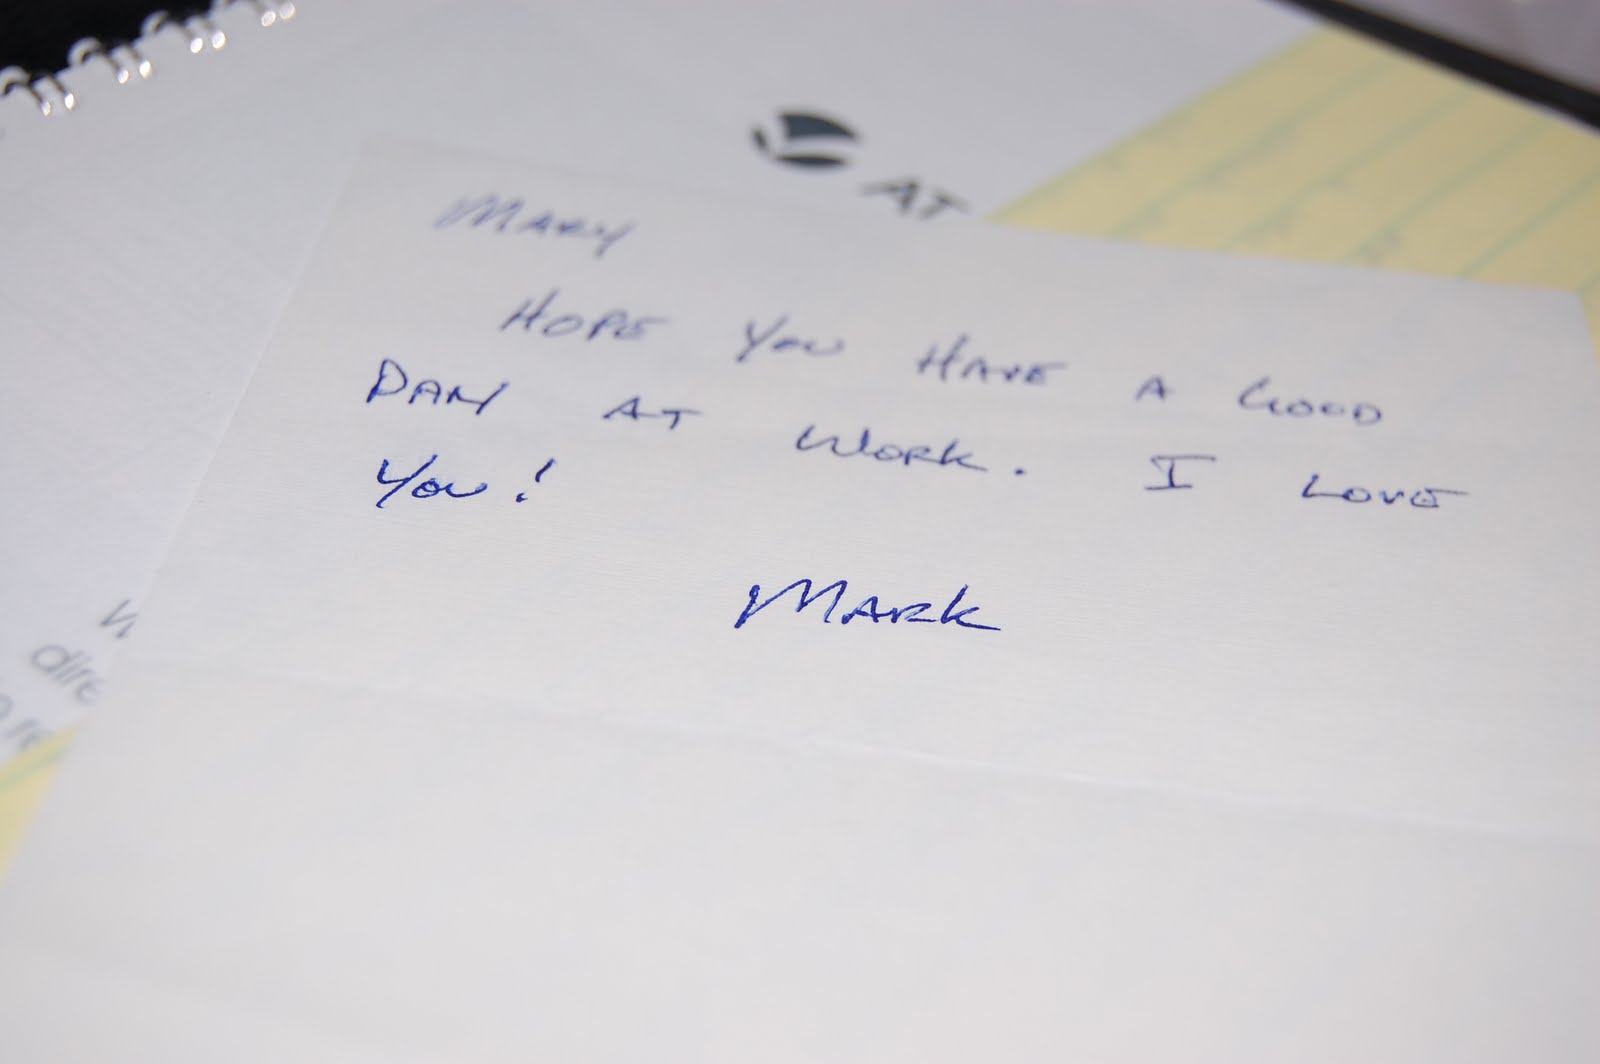 AT
MARY
HOPE YOU HAVE A GOOD
DAY AT WORK. I LOVE
YOU!
MARK
dire